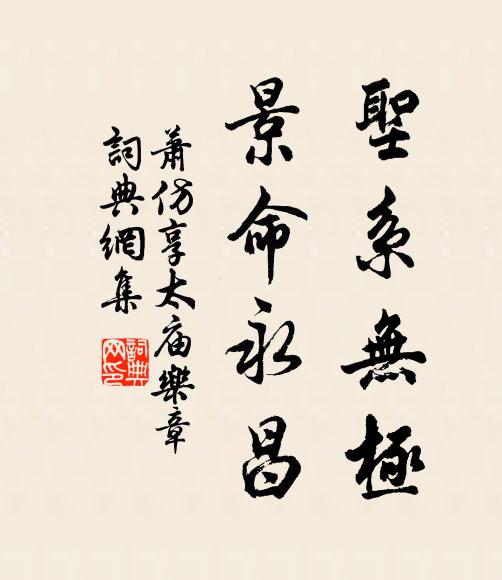 聖系無極
景命永昌
蕭仿享太庙樂章
詞典網集
詞典網印